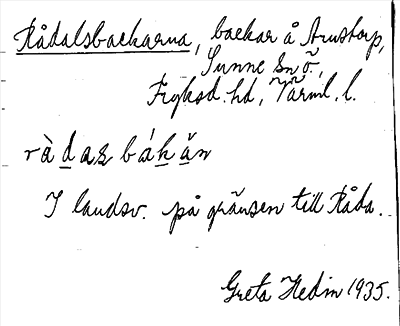 Rådalsbackarna, backar å Arnstorp,
Sunne sn ö.,
Fryksd. hd, Värml. l.
ràdasbákăn
I landsv. på gränsen till Råda.
Greta Hedin 1935.